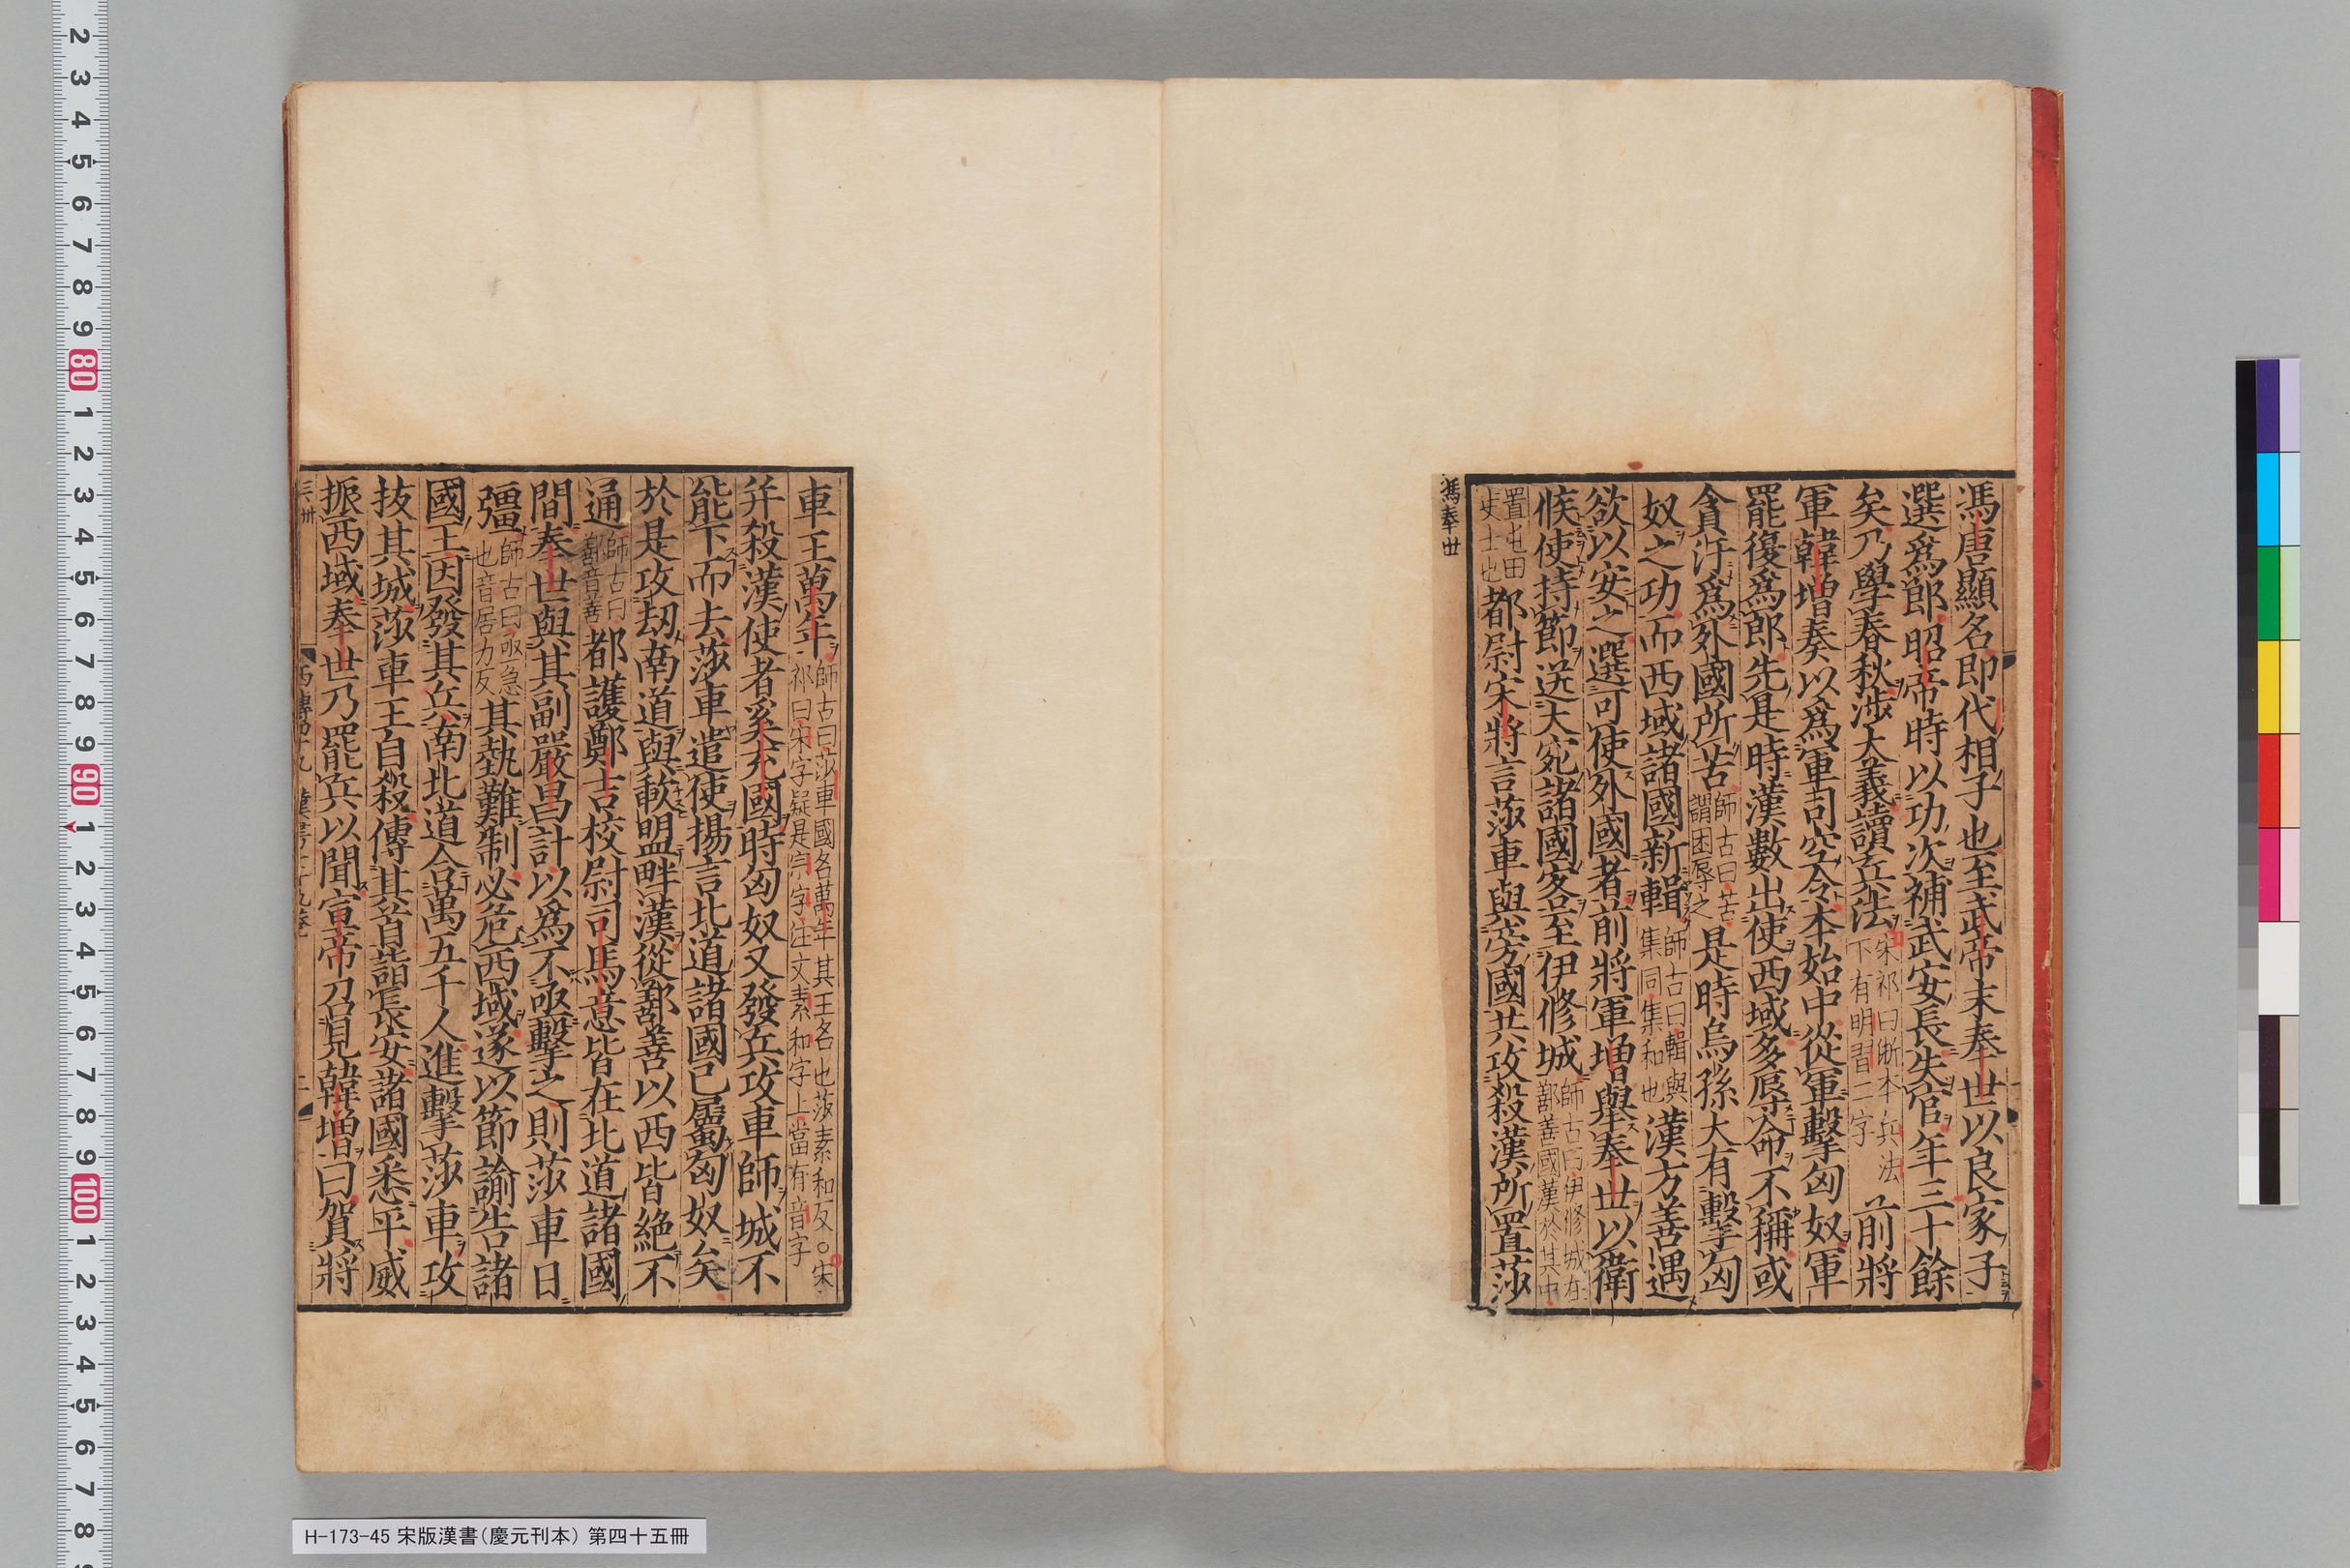 馮唐顯名即代相子也至武帝末奉世以良家子
選爲郎昭帝時以功次補武安長失官年三十餘
矣乃學春秋涉大義讀兵法宋祁曰浙本兵法下有明習二字前將
軍韓增奏以爲軍司空令本始中從軍擊匈奴軍
罷復爲郎先是時漢數出使西域多辱命不稱或
貪汙爲外國所苦師古曰苦謂困辱之是時烏孫大有擊匈
奴之功而西域諸國新輯師古曰輯與集同集和也漢方善遇
欲以安之選可使外國者前將軍增舉奉世以衛
候使持節送大宛諸國客至伊修城師古曰伊修城在鄯善國漢於其中
置屯田吏士也都尉宋將言莎車與旁國共攻殺漢所置莎
馮奉世
車王萬年師古曰莎車國名萬年其王名也莎素和反○宋祁曰宋字疑是宗字注文素和字上當有音字
并殺漢使者奚充國時匈奴又發兵攻車師城不
能下而去莎車遣使揚言北道諸國已屬匈奴矣
於是攻刼南道與歃盟畔漢從鄯善以西皆絶不
通師古曰鄯音善都護鄭吉校尉司馬意皆在北道諸國
間奉世與其副嚴昌計以爲不亟擊之則莎車日
彊師古曰亟急也音居力反其埶難制必危西域遂以節諭告諸
國王因發其兵南北道合萬五千人進擊莎車攻
拔其城莎車王自殺傳其首詣長安諸國悉平威
振西域奉世乃罷兵以聞宣帝召見韓增曰賀將
2
3
4
5
6
7
8
9
80
1
2
3
4
5
6
7
8
9
90
1
2
3
4
5
6
7
8
9
100
1
2
3
4
5
6
7
8
H-173-45 宋版漢書（慶元刊本） 第四十五冊